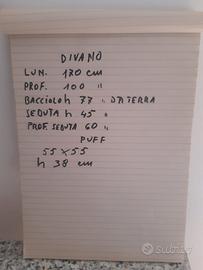 DIVANO
LUN. 170 cm
PROF. 100 "
BACCIOLO h 77 " DA TERRA
SEDUTA h 45 "
PROF. SEDUTA 60 "
PUFF
55 x 55
h 38 cm
subito